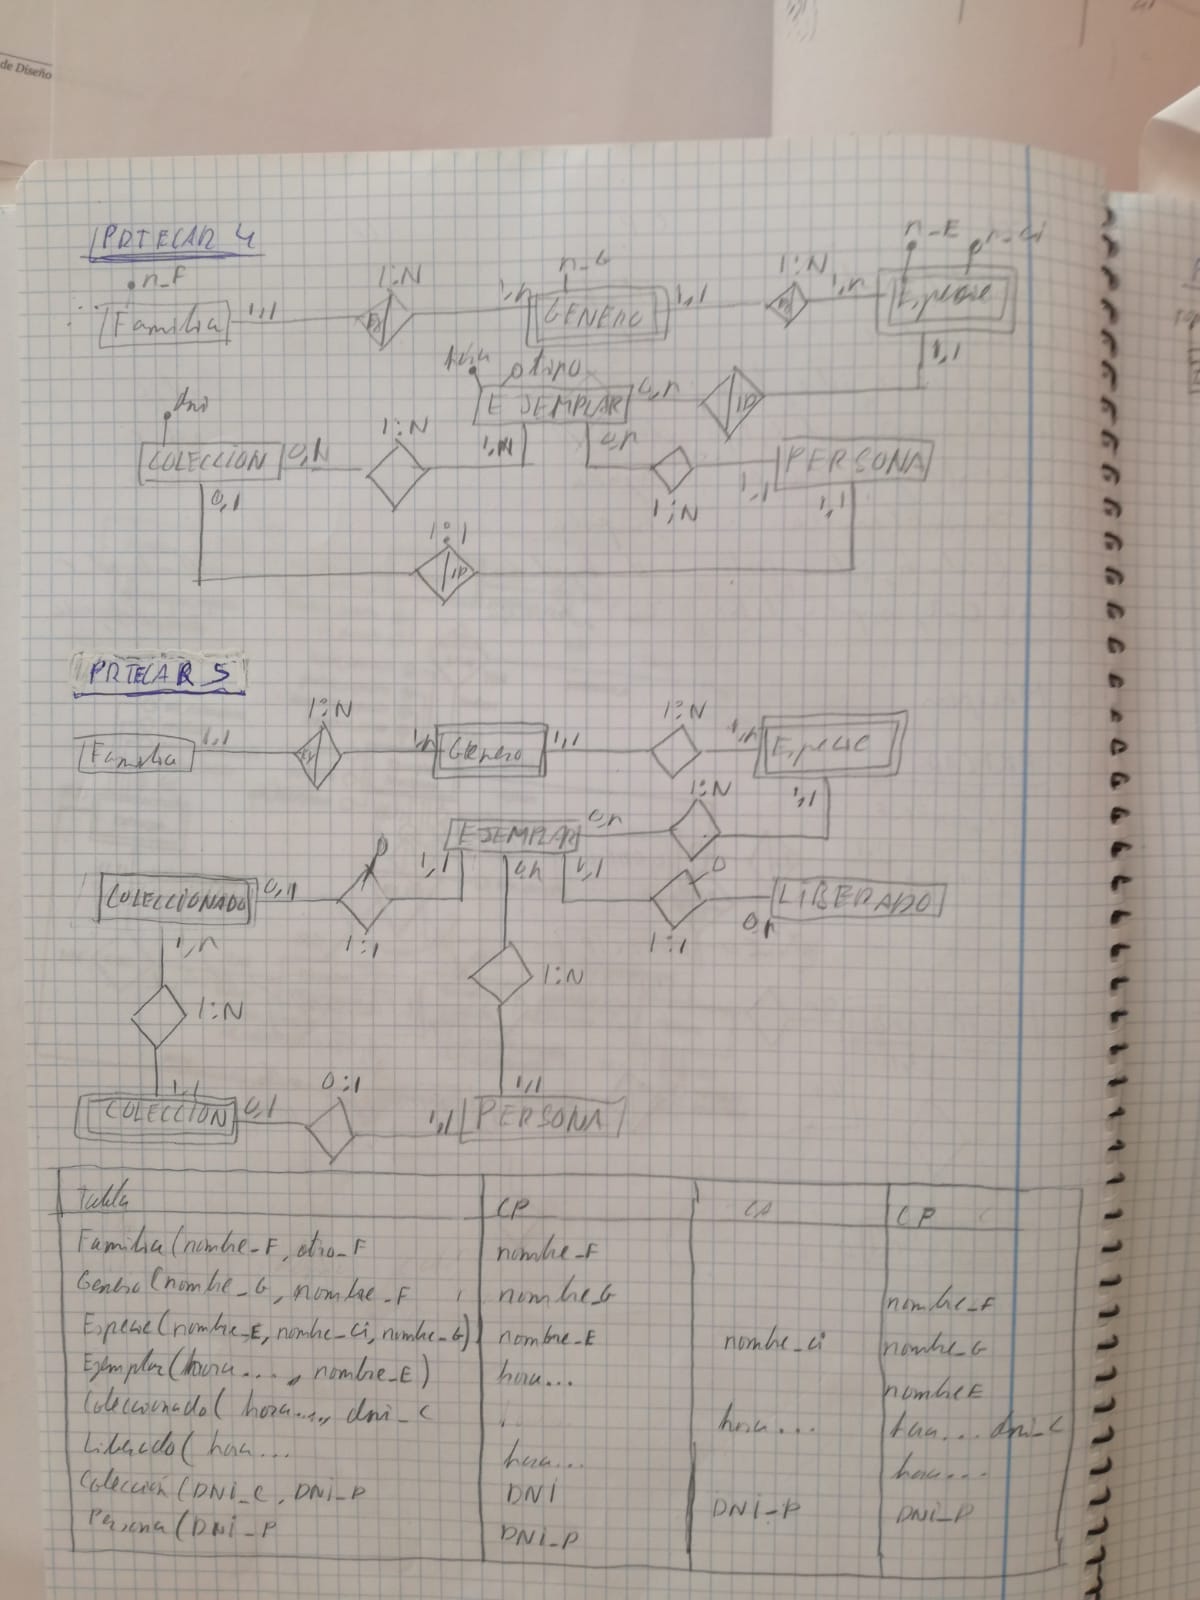 de Diseño
PRTECAR 4
n_F
1:N
n_G
1:N
n_E
n_Ci
Familia
1,1
1,n
GENERO
1,1
1,n
Especie
hora
tipo
1,1
dni
EJEMPLAR
0,n
ID
COLECCION
0,N
1:N
1,N
0,n
PERSONA
0,1
1:N
1,1
1,1
1:1
ID
PRTECAR 5
1:N
1:N
Familia
1,1
1,n
Genero
1,1
1,n
Especie
1:N
1,1
EJEMPLAR
0,n
COLECCIONADO
0,1
1,1
0,n
1,1
LIBERADO
1:1
1:1
0,n
1,n
1:N
1:N
1,1
0:1
1,1
COLECCION
0,1
1,1
PERSONA
Tabla CP CA CP
Familia(nombre_F, otro_F nombre_F
Genero(nombre_G, nombre_F nombre_G nombre_F
Especie(nombre_E, nombre_Ci, nombre_G) nombre_E nombre_Ci nombre_G
Ejemplar(hora..., nombre_E) hora... nombreE
Coleccionado( hora..., dni_C hora... hora... dni_C
Liberado( hora... hora... hora...
Colección(DNi_C, DNi_P DNI DNi_P DNi_P
Persona(DNi_P DNi_P